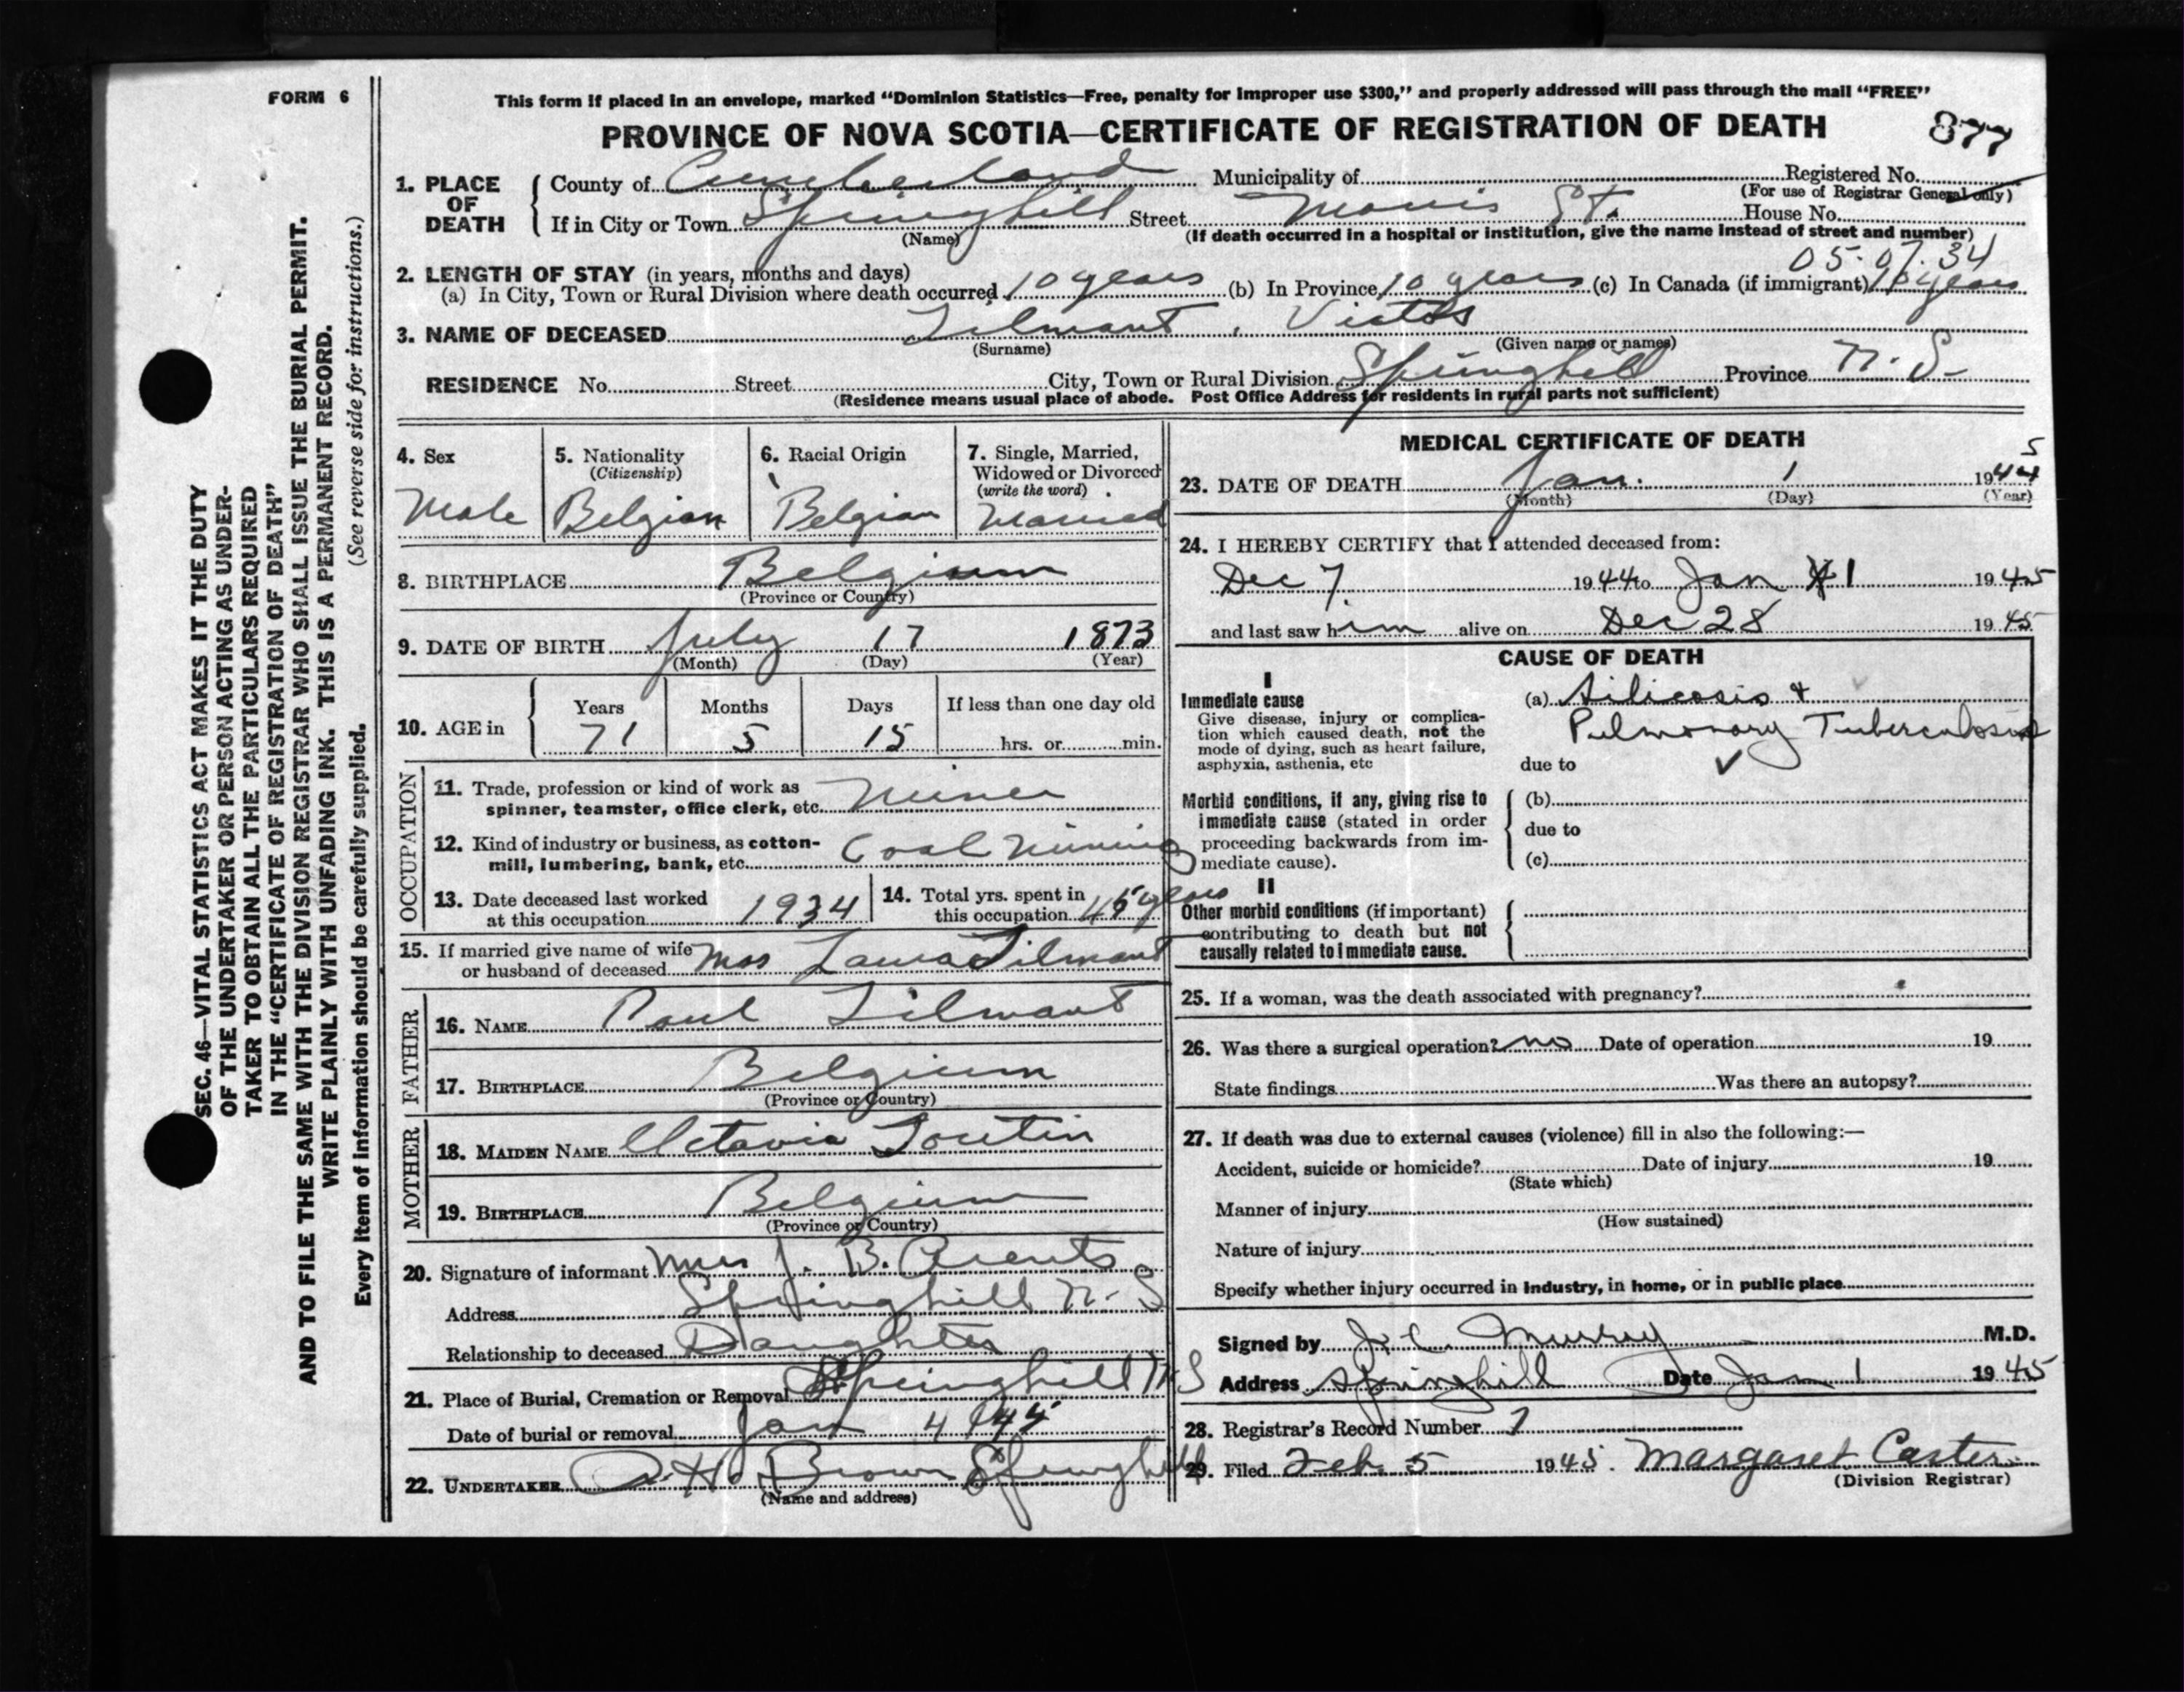 FORM 6
This form if placed in an envelope, marked "Dominion Statistics—Free, penalty for improper use $300," and properly addressed will pass through the mail "FREE"
PROVINCE OF NOVA SCOTIA—CERTIFICATE OF REGISTRATION OF DEATH
877
1. PLACE OF DEATH County of Cumberland Municipality of Registered No.
(For use of Registrar General only)
If in City or Town Springhill Street Morris St. House No.
(Name) (If death occurred in a hospital or institution, give the name instead of street and number)
05.07.34
2. LENGTH OF STAY (in years, months and days)
(a) In City, Town or Rural Division where death occurred 10 years (b) In Province 10 years (c) In Canada (if immigrant) 10 years
3. NAME OF DECEASED Tilmant, Victor
(Surname) (Given name or names)
RESIDENCE No. Street City, Town or Rural Division Springhill Province N. S.
(Residence means usual place of abode. Post Office Address for residents in rural parts not sufficient)
4. Sex Male
5. Nationality (Citizenship) Belgian
6. Racial Origin Belgian
7. Single, Married, Widowed or Divorced (write the word) Married
8. BIRTHPLACE Belgium
(Province or Country)
9. DATE OF BIRTH July 17 1873
(Month) (Day) (Year)
10. AGE in Years 71 Months 5 Days 15 If less than one day old hrs. or min.
OCCUPATION
11. Trade, profession or kind of work as spinner, teamster, office clerk, etc. Miner
12. Kind of industry or business, as cotton-mill, lumbering, bank, etc. Coal Mining
13. Date deceased last worked at this occupation 1934
14. Total yrs. spent in this occupation 45 years
15. If married give name of wife or husband of deceased Mrs Laura Tilmant
FATHER
16. NAME Paul Tilmant
17. BIRTHPLACE Belgium
(Province or Country)
MOTHER
18. MAIDEN NAME Octavia
19. BIRTHPLACE Belgium
(Province or Country)
20. Signature of informant Mrs J. B. Arents
Address Springhill N. S
Relationship to deceased Daughter
21. Place of Burial, Cremation or Removal Springhill N S
Date of burial or removal Jan 4 1945
22. UNDERTAKER A. H. Brown Springhill
(Name and address)
MEDICAL CERTIFICATE OF DEATH
23. DATE OF DEATH Jan. 1 1944 5
(Month) (Day) (Year)
24. I HEREBY CERTIFY that I attended deceased from:
Dec 7 1944 to Jan 1 1945
and last saw him alive on Dec 28 1945
CAUSE OF DEATH
I
Immediate cause
Give disease, injury or complication which caused death, not the mode of dying, such as heart failure, asphyxia, asthenia, etc
(a) Silicosis &
Pulmonary Tuberculosis
due to
Morbid conditions, if any, giving rise to immediate cause (stated in order proceeding backwards from immediate cause).
(b)
due to
(c)
II
Other morbid conditions (if important) contributing to death but not causally related to immediate cause.
25. If a woman, was the death associated with pregnancy?
26. Was there a surgical operation? no Date of operation 19
State findings Was there an autopsy?
27. If death was due to external causes (violence) fill in also the following:—
Accident, suicide or homicide? Date of injury 19
(State which)
Manner of injury
(How sustained)
Nature of injury
Specify whether injury occurred in industry, in home, or in public place
Signed by J. C. Murray M.D.
Address Springhill Date Jan 1 1945
28. Registrar's Record Number 7
29. Filed Feb. 5 1945. Margaret Carter
(Division Registrar)
SEC. 46—VITAL STATISTICS ACT MAKES IT THE DUTY
OF THE UNDERTAKER OR PERSON ACTING AS UNDER-
TAKER TO OBTAIN ALL THE PARTICULARS REQUIRED
IN THE "CERTIFICATE OF REGISTRATION OF DEATH"
AND TO FILE THE SAME WITH THE DIVISION REGISTRAR WHO SHALL ISSUE THE BURIAL PERMIT.
WRITE PLAINLY WITH UNFADING INK. THIS IS A PERMANENT RECORD.
Every item of information should be carefully supplied. (See reverse side for instructions.)